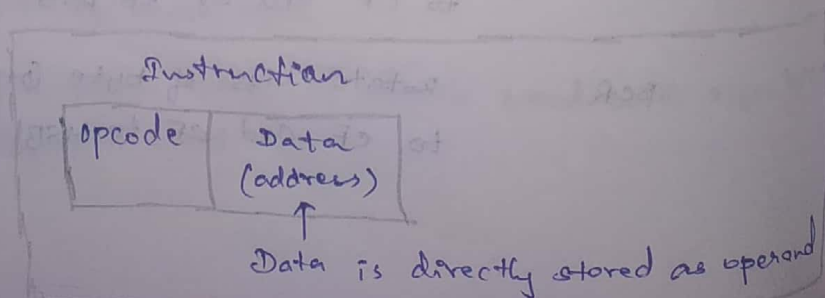 Instruction
opcode Data
(address)
Data is directly stored as operand